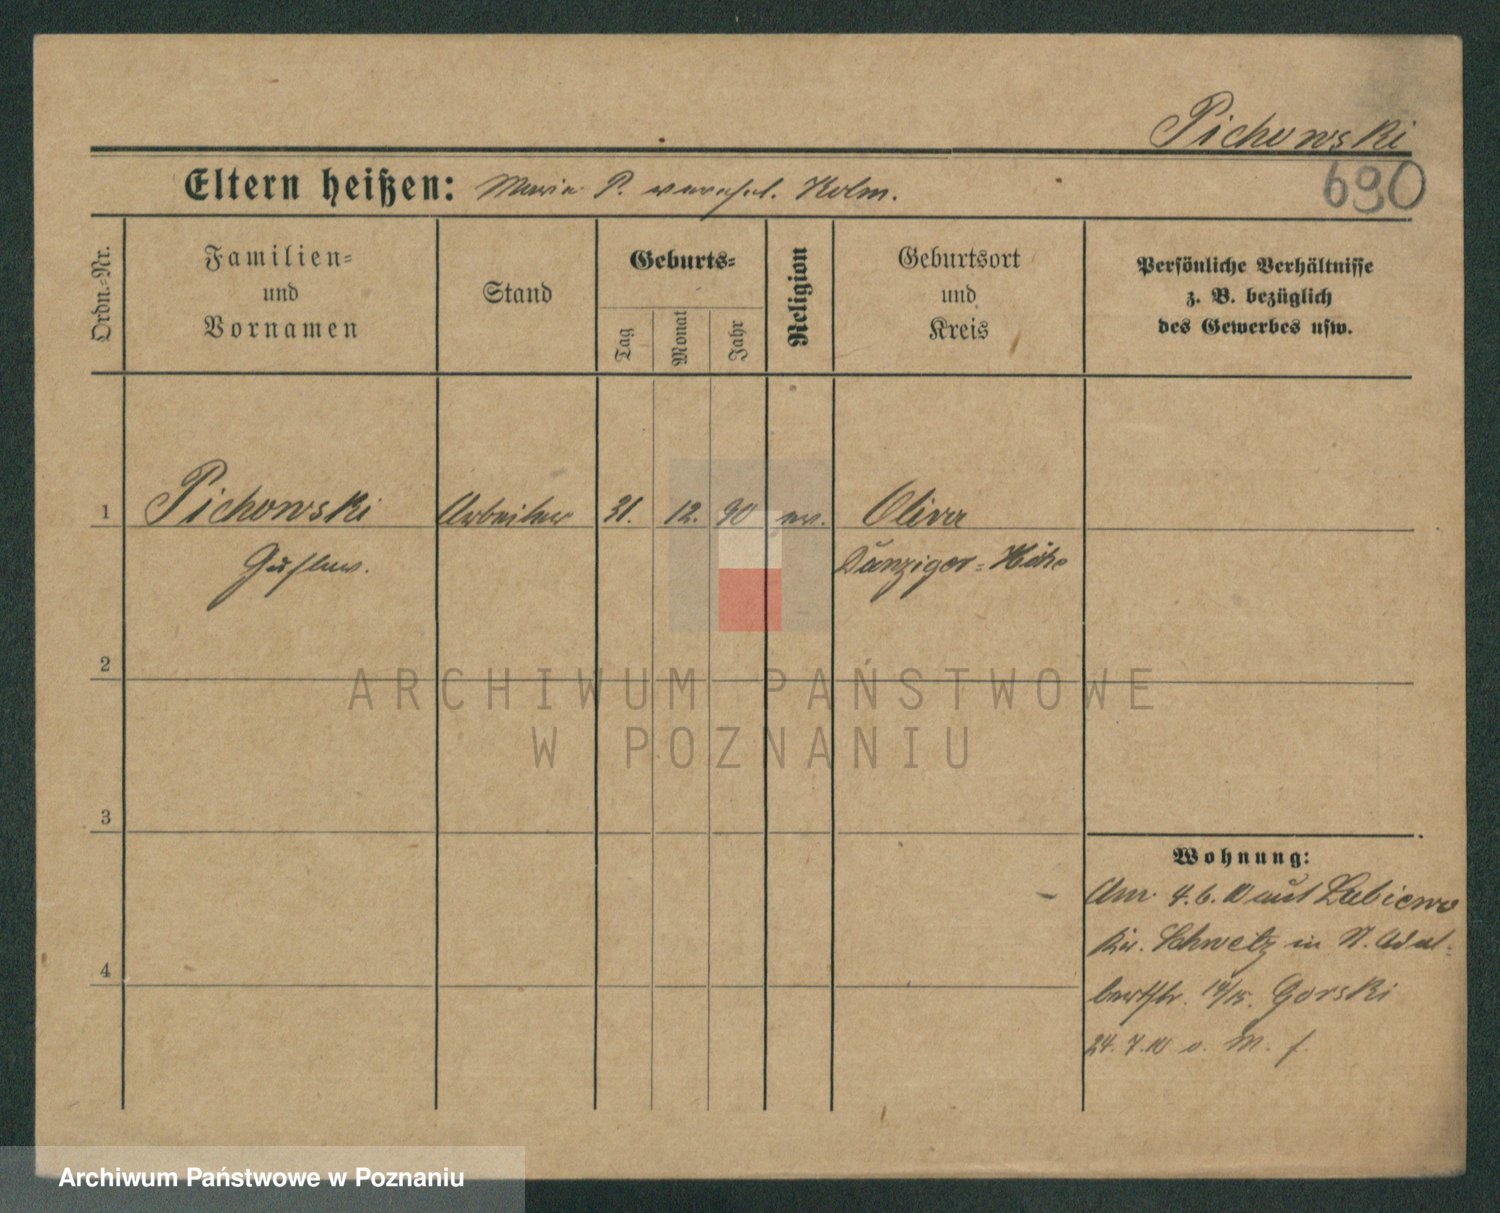 Pichowski
690
Eltern heißen: Maria P. verehel. Kolm.
Ordn.-Nr.
Familien-
und
Vornamen
Stand
Geburts-
Tag
Monat
Jahr
Religion
Geburtsort
und
Kreis
Persönliche Verhältnisse
z. B. bezüglich
des Gewerbes usw.
1 Pichowski Arbeiter 31. 12. 90 ev. Oliva
Gustav. Danziger-Höhe
2
3
4
Wohnung:
Am 4.6.10 aus Lubiewo
Kr. Schwetz in St. Adal-
bertstr. 14/15. Gorski
24.7.10 o. M. f.
ARCHIWUM PAŃSTWOWE
W POZNANIU
Archiwum Państwowe w Poznaniu